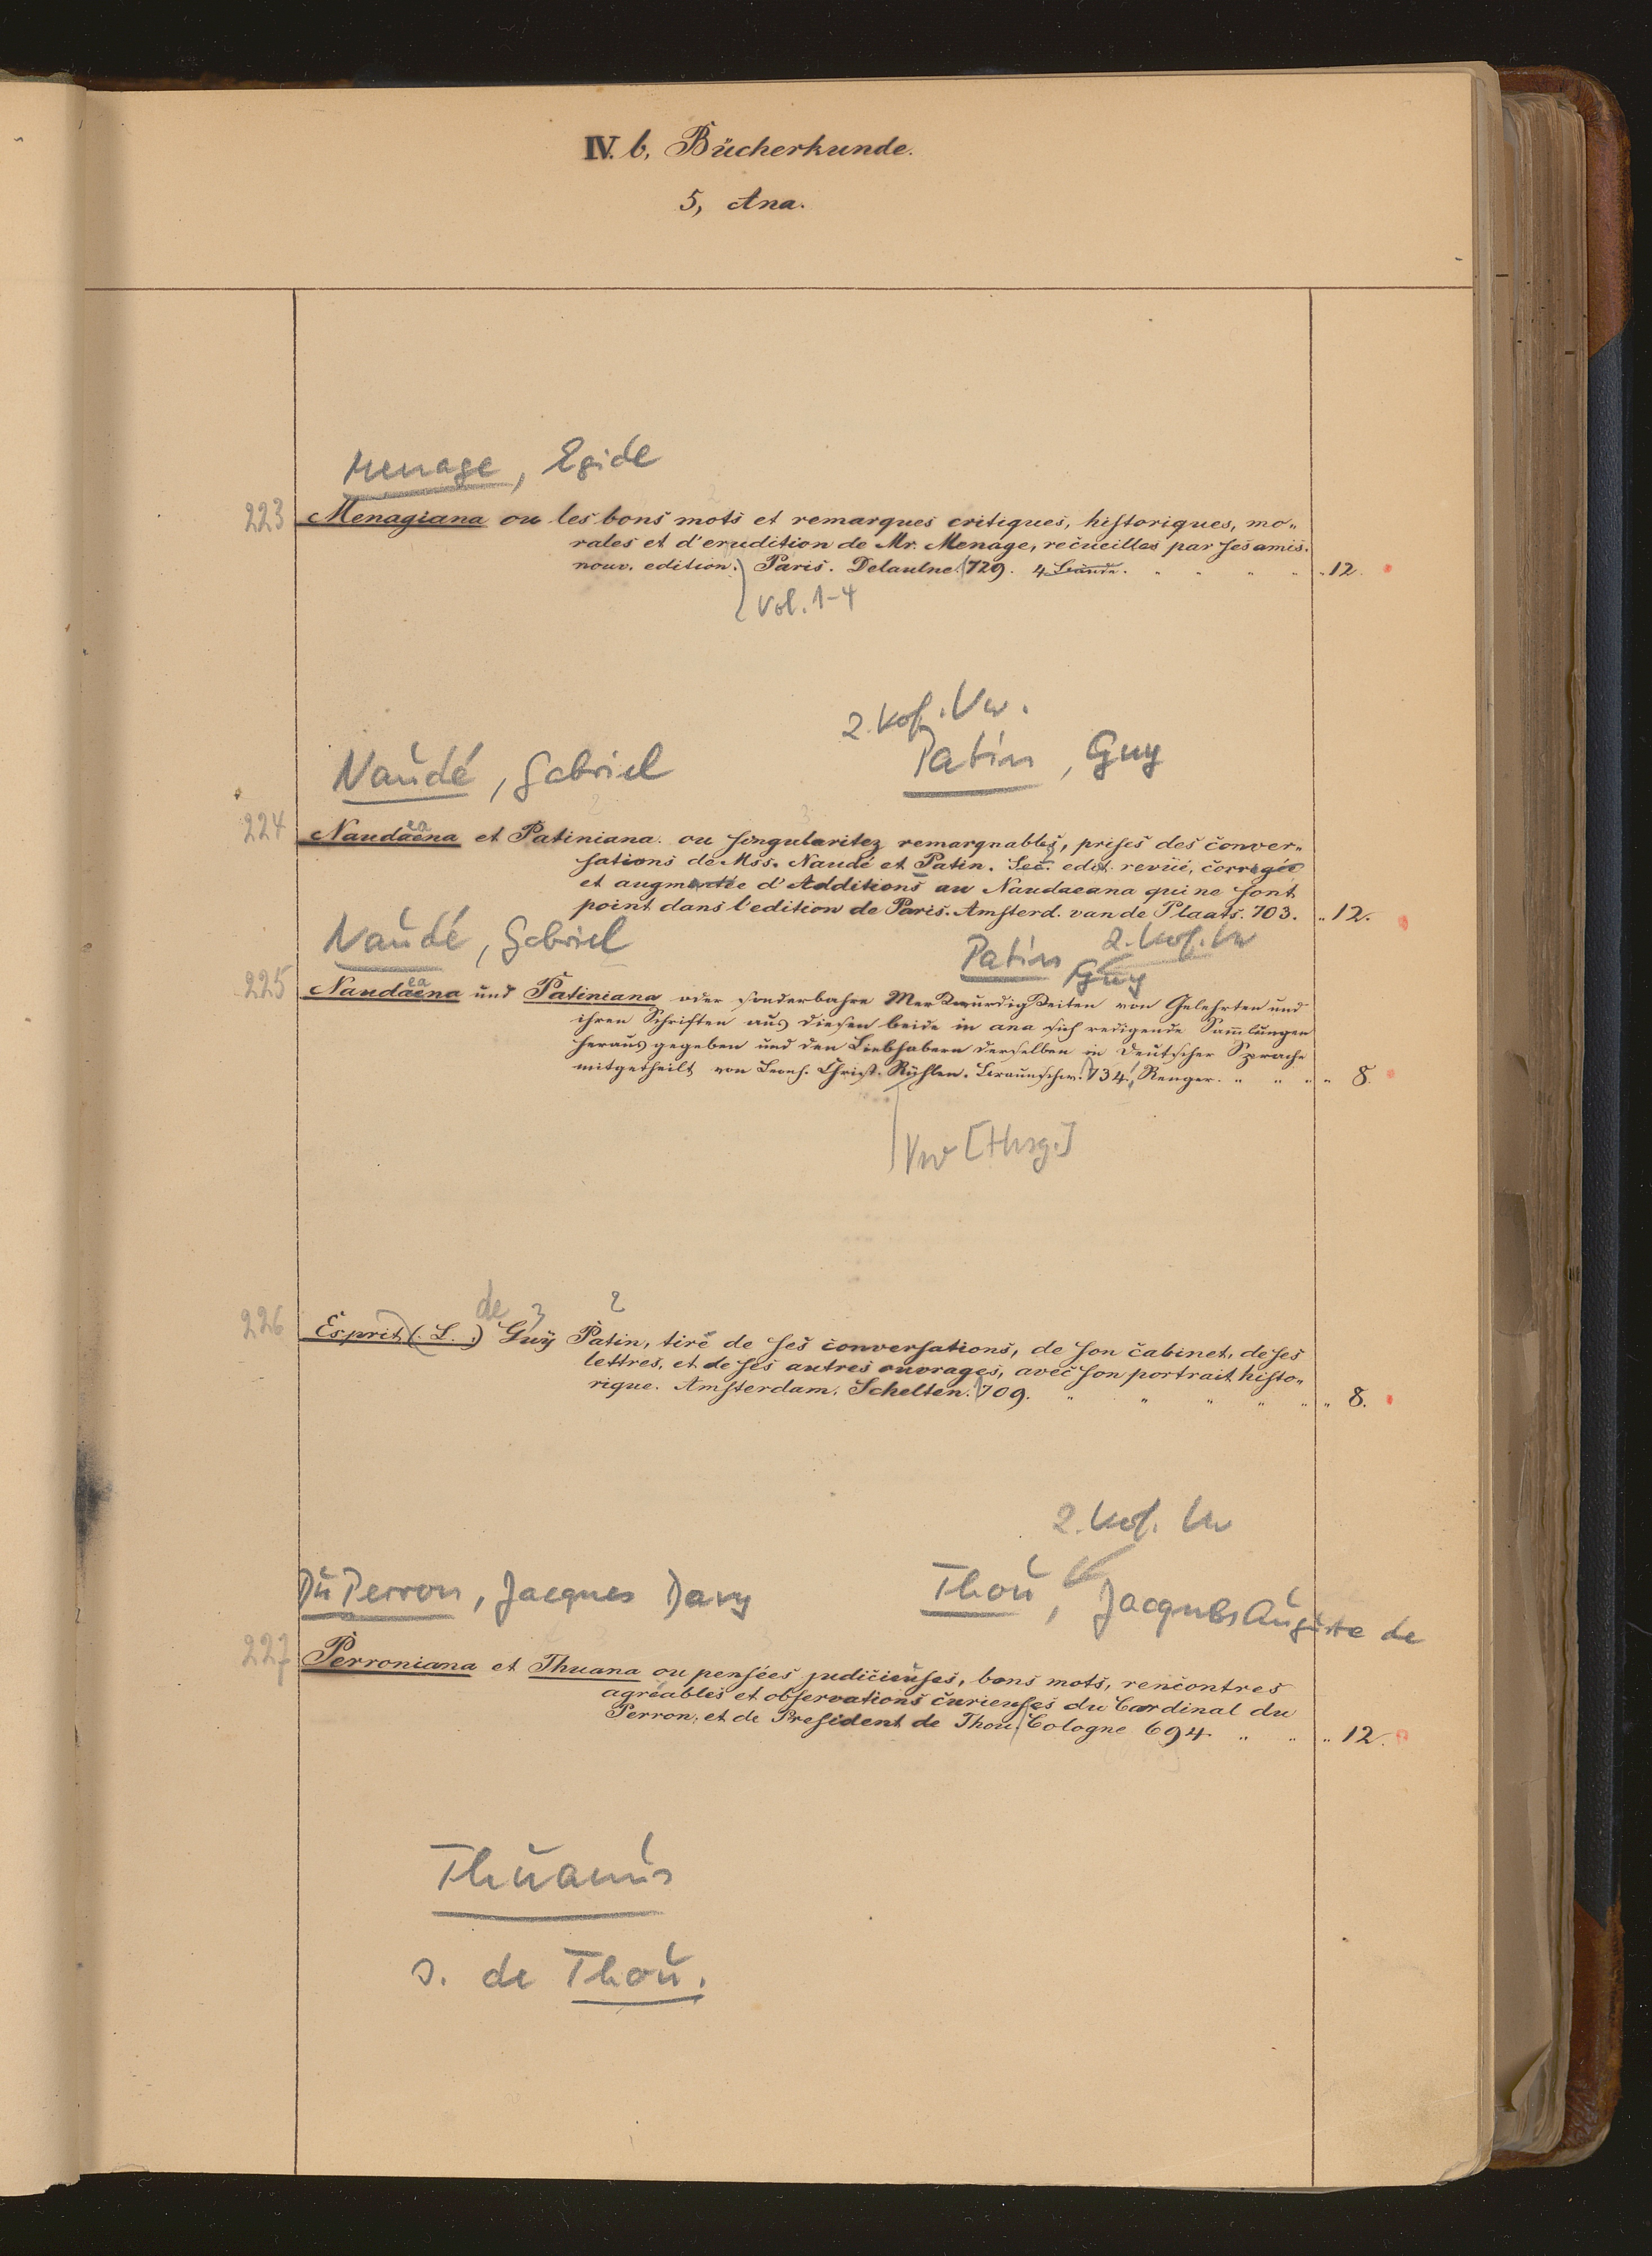 IV. b, Bücherkunde.
5, Ana.
Menage, Egide
223 Menagiana ou les bons mots et remarques critiques, historiques, mo-
rales et d'erudition de Mr. Menage, recueilles par ses amis.
nouv. edition. Paris. Delaulne. 1729. 4 Bände. " " " " " 12.
Vol. 1-4
2. Kopf. Vw.
Naudé, Gabriel Patin, Guy
224 Naudaeana et Patiniana. ou singularitez remarquables, prises des conver-
sations de Mss. Naudé et Patin. Sec. edit. revüé, corrigée
et augmentée d'Additions au Naudaeana qui ne sont
point dans l'edition de Paris. Amsterd. van de Plaats. 703. " 12.
Naudé, Gabriel Patin, Guy 2. Kopf. Vw
225 Naudaeana und Patiniana oder sonderbahre Merkwürdigkeiten von Gelehrten und
ihren Schriften aus diesen beide in ana sich redigende Sam̄lungen
heraus gegeben und den Liebhabern derselben in Deutscher Sprache
mitgetheilt von Leonh. Christ. Rühlen. Braunschw. 1734, Renger. " " " " 8.
Vw [Hrsg.]
de 3 2
226 Esprit (L.) Guÿ Patin, tiré de ses conversations, de son cabinet, de ses
lettres, et de ses autres ouvrages, avec son portrait histo-
rique. Amsterdam. Schelten. 1709. " " " " " " 8.
2. Kopf. Vw
Du Perron, Jacques Davy Thou, Jacques Auguste de
227 Perroniana et Thuana ou pensées judicieuses, bons mots, rencontres
agréables et observations curieuses du Cardinal du
Perron, et de President de Thou. Cologne 694. " " " 12.
Thuanus
s. de Thou.